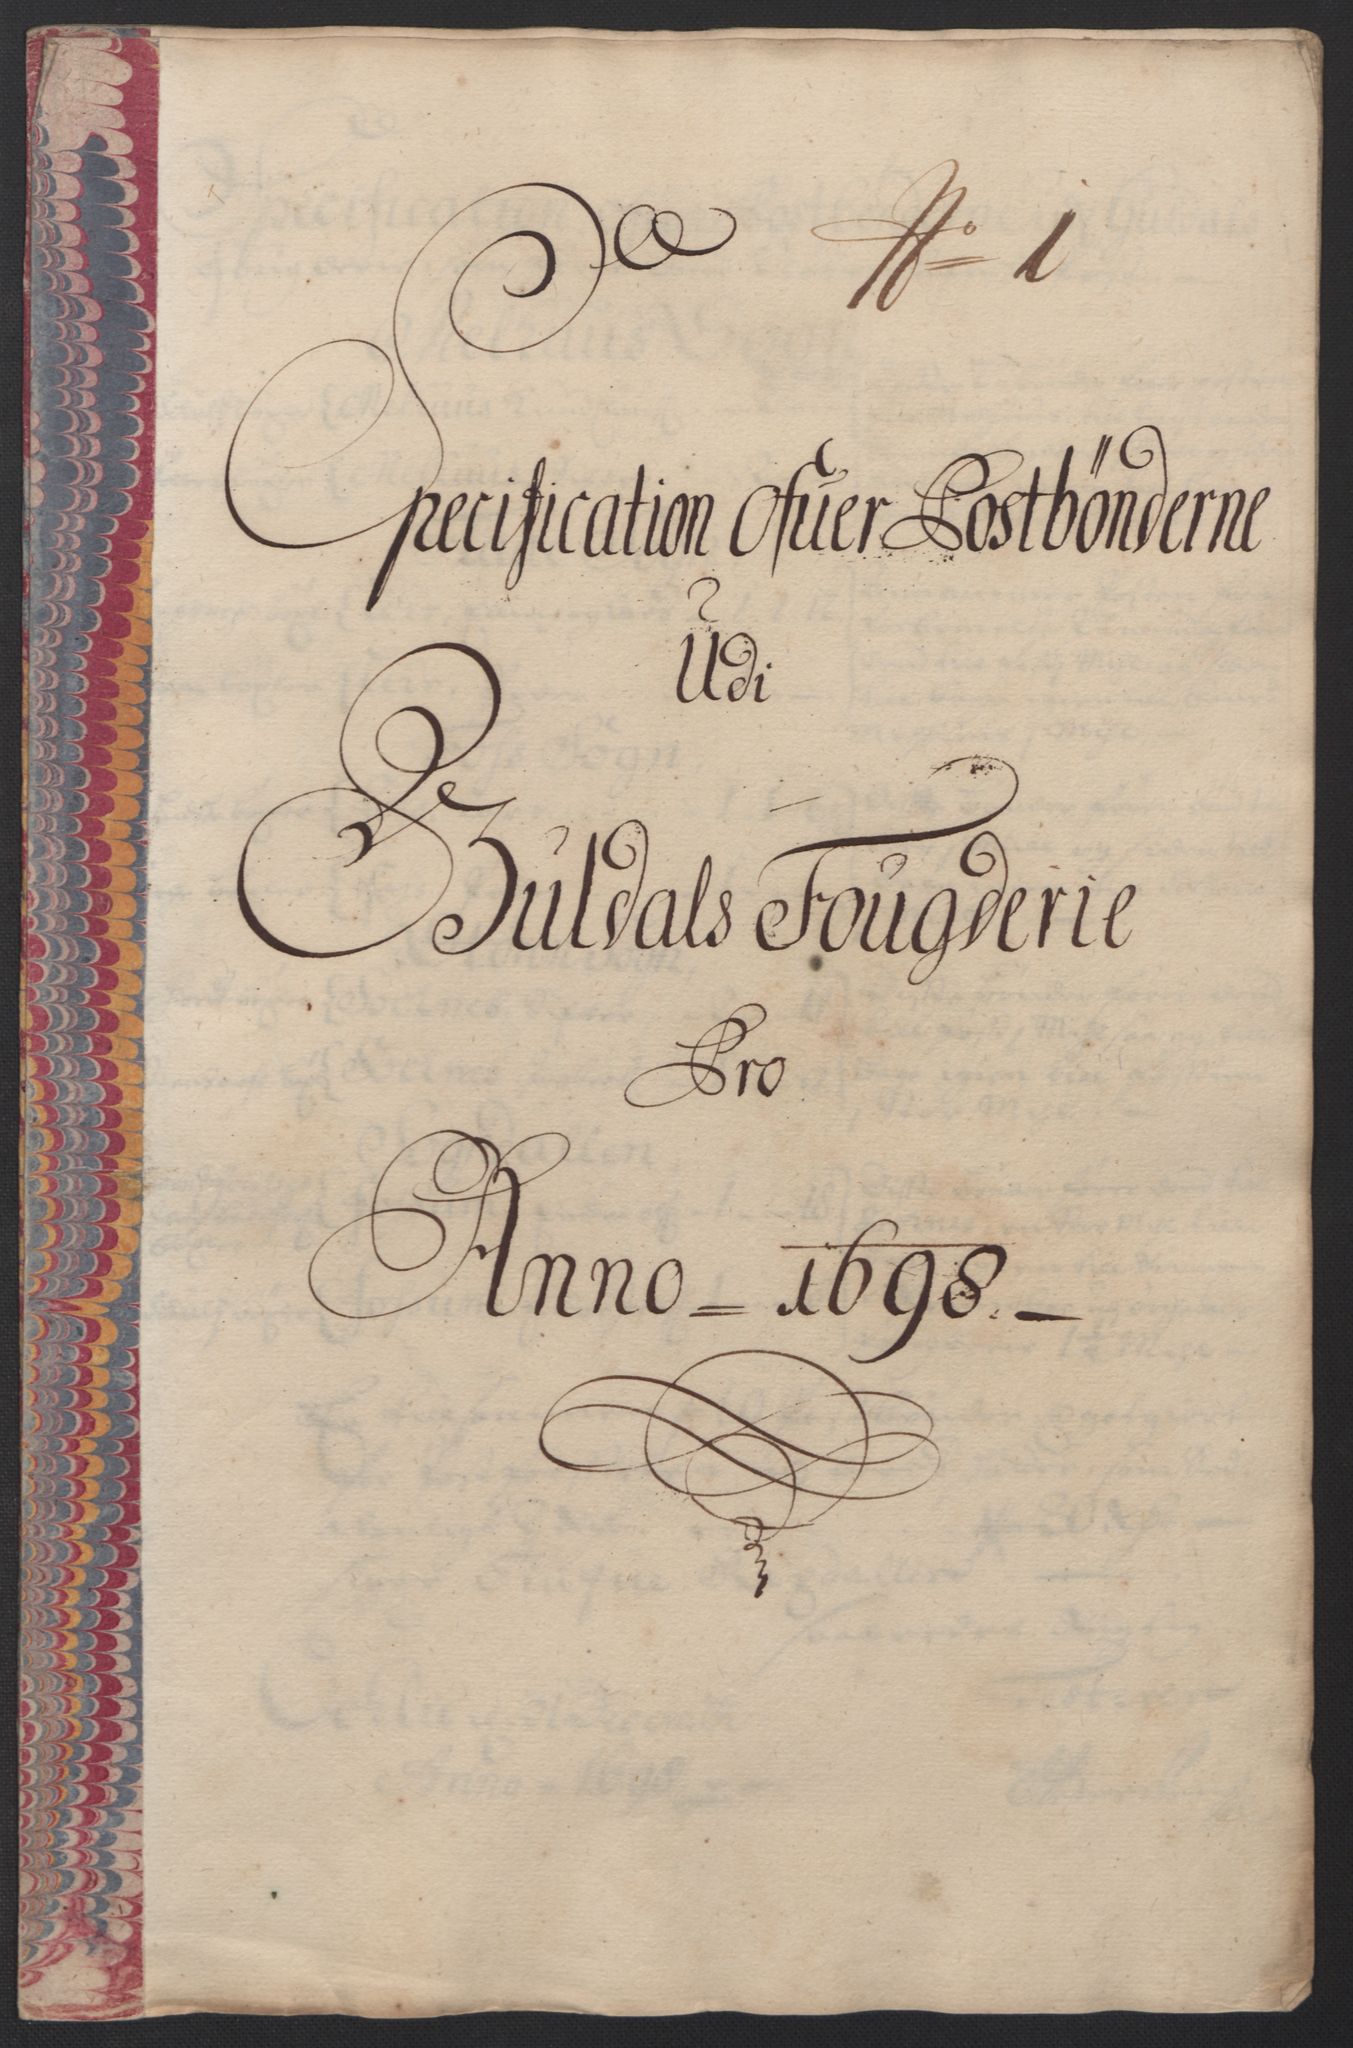 No 1
Specification Ofuer Postbönderne
Udi
Guldals Fougderie
Pro
Anno = 1698. –